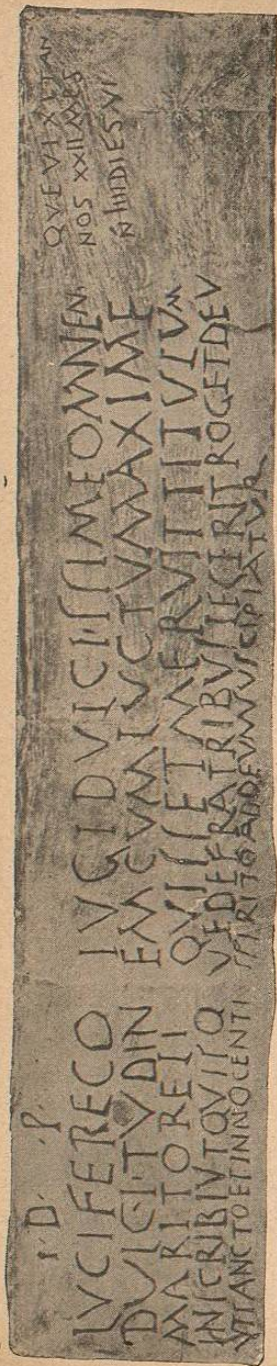 · D · P ·
LVCIFERECO IVGIDVLCISSIMEOMNEN
DVLCITVDIN EMCVMLVCTVMAXIME
MARITORELI QVISSETMERVITTITVLVM
INSCRIBIVTQVISQ VEDEFRATRIBVSLEGERITROGETDEV
VTSANCTOETINNOCENTI SPIRITOADDEVMSVSCIPIATVR
QVEVIXITAN
NOS XXII MES
DIES VI